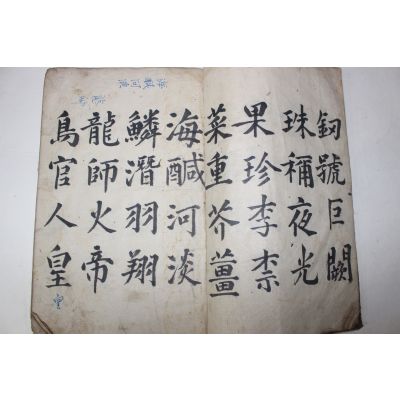 釼號巨闕
珠稱夜光
果珍李柰
菜重芥薑
海醎河淡
鱗潛羽翔
龍師火帝
鳥官人皇
皇